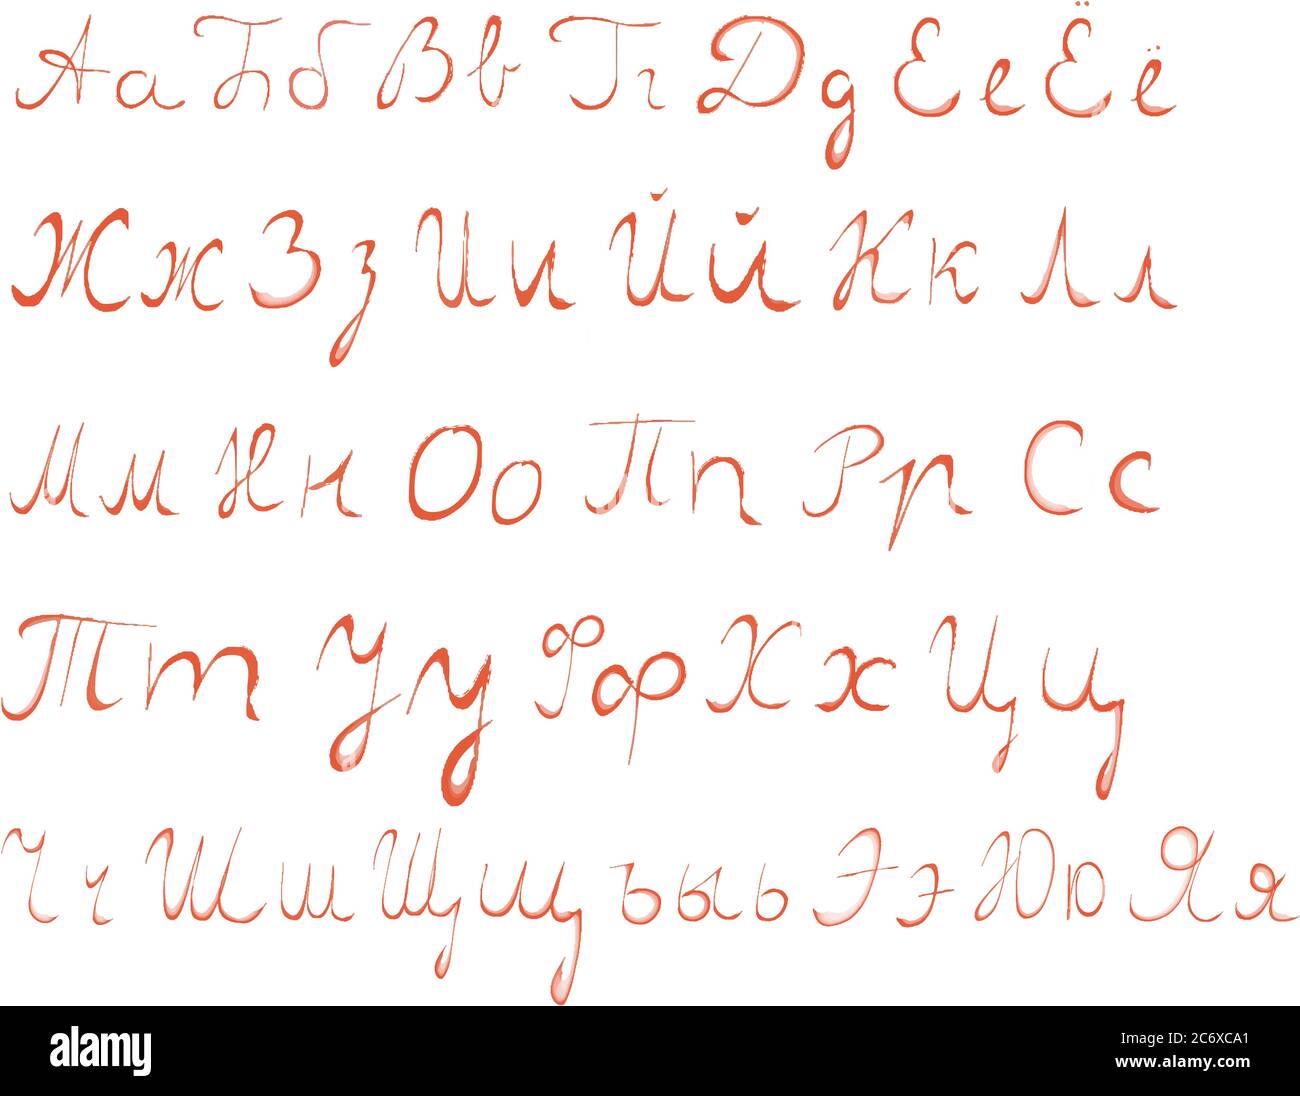 Аа Бб Вв Гг Дд Ее Ёё
Жж Зз Ии Йй Кк Лл
Мм Нн Оо Пп Рр Сс
Тт Уу Фф Хх Цц
Чч Шш Щщ ъыь Ээ Юю Яя
alamy
Image ID: 2C6XCA1
www.alamy.com